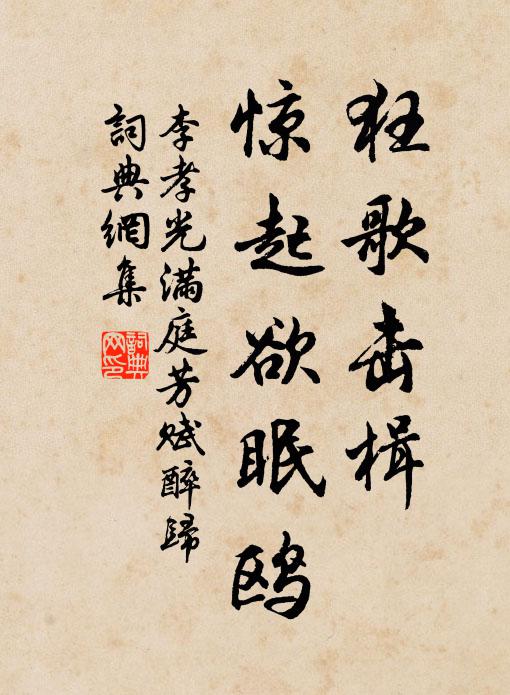 狂歌击楫
惊起欲眠鸥
李孝光满庭芳赋醉歸
詞典網集
詞典网印